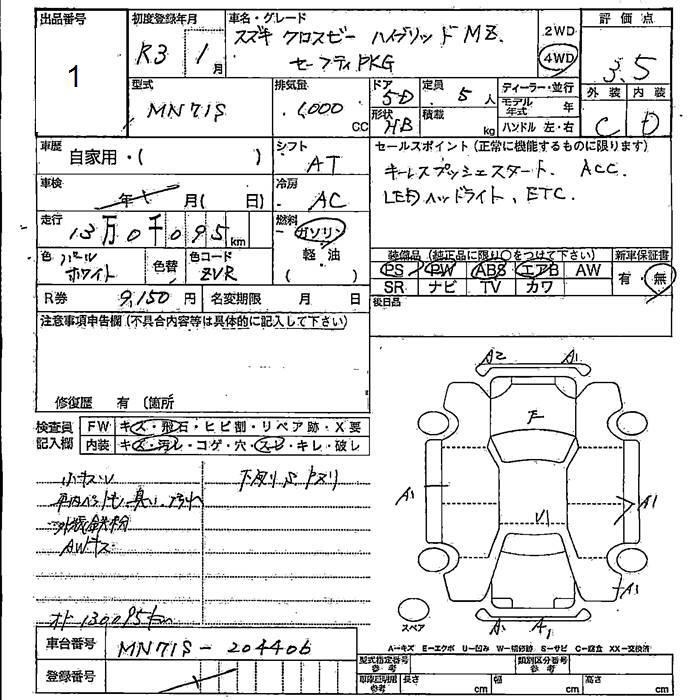 出品番号
1
初度登録年月
R3 1月
車名・グレード
スズキ クロスビー ハイブリッド MZ.
セーフティPKG
2WD
4WD
評価点
3.5
外装 内装
C D
型式
MN71S
排気量
1,000 CC
ドア
5D
形状
HB
定員
5人
積載
kg
ディーラー・並行
モデル年式 年
ハンドル 左・右
車歴
自家用・( )
シフト
AT
セールスポイント (正常に機能するものに限ります)
キーレスプッシュスタート. ACC.
LEDヘッドライト、ETC.
車検
年 月( 日)
冷房
AC
走行
13万0千095km
燃料
ガソリン
軽・油
( )
色 パール
ホワイト
色替
色コード
ZVR
装備品 (純正品に限り○をつけて下さい)
PS PW ABS エアB AW
SR ナビ TV カワ
新車保証書
有・無
R券 9,150円
名変期限 月 日
後日品
注意事項申告欄 (不具合内容等は具体的に記入して下さい)
修復歴 有 (箇所
検査員記入欄
FW キズ・飛石・ヒビ割・リペア跡・X要
内装 キズ・汚レ・コゲ・穴・スレ・キレ・破レ
小キズU
下廻りサビ
車内ペット毛・臭い・汚れ
外装鉄粉
AWキズ
オド 130095km
A2 A1
F
A1
A1
V1
A1
A1
A1
スペア
A－キズ E－エクボ U－凹み W－補修跡 S－サビ C－腐食 XX－交換済
車台番号
MN71S-204406
登録番号
型式指定番号
参考
類別区分番号
参考
参考
長さ cm
幅 cm
高さ cm